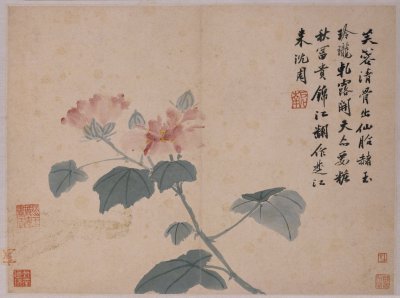 芙蓉清骨出仙胎赭玉
玲瓏乾露開天亦要粧
秋富貴錦江翻作楚江
來沈周